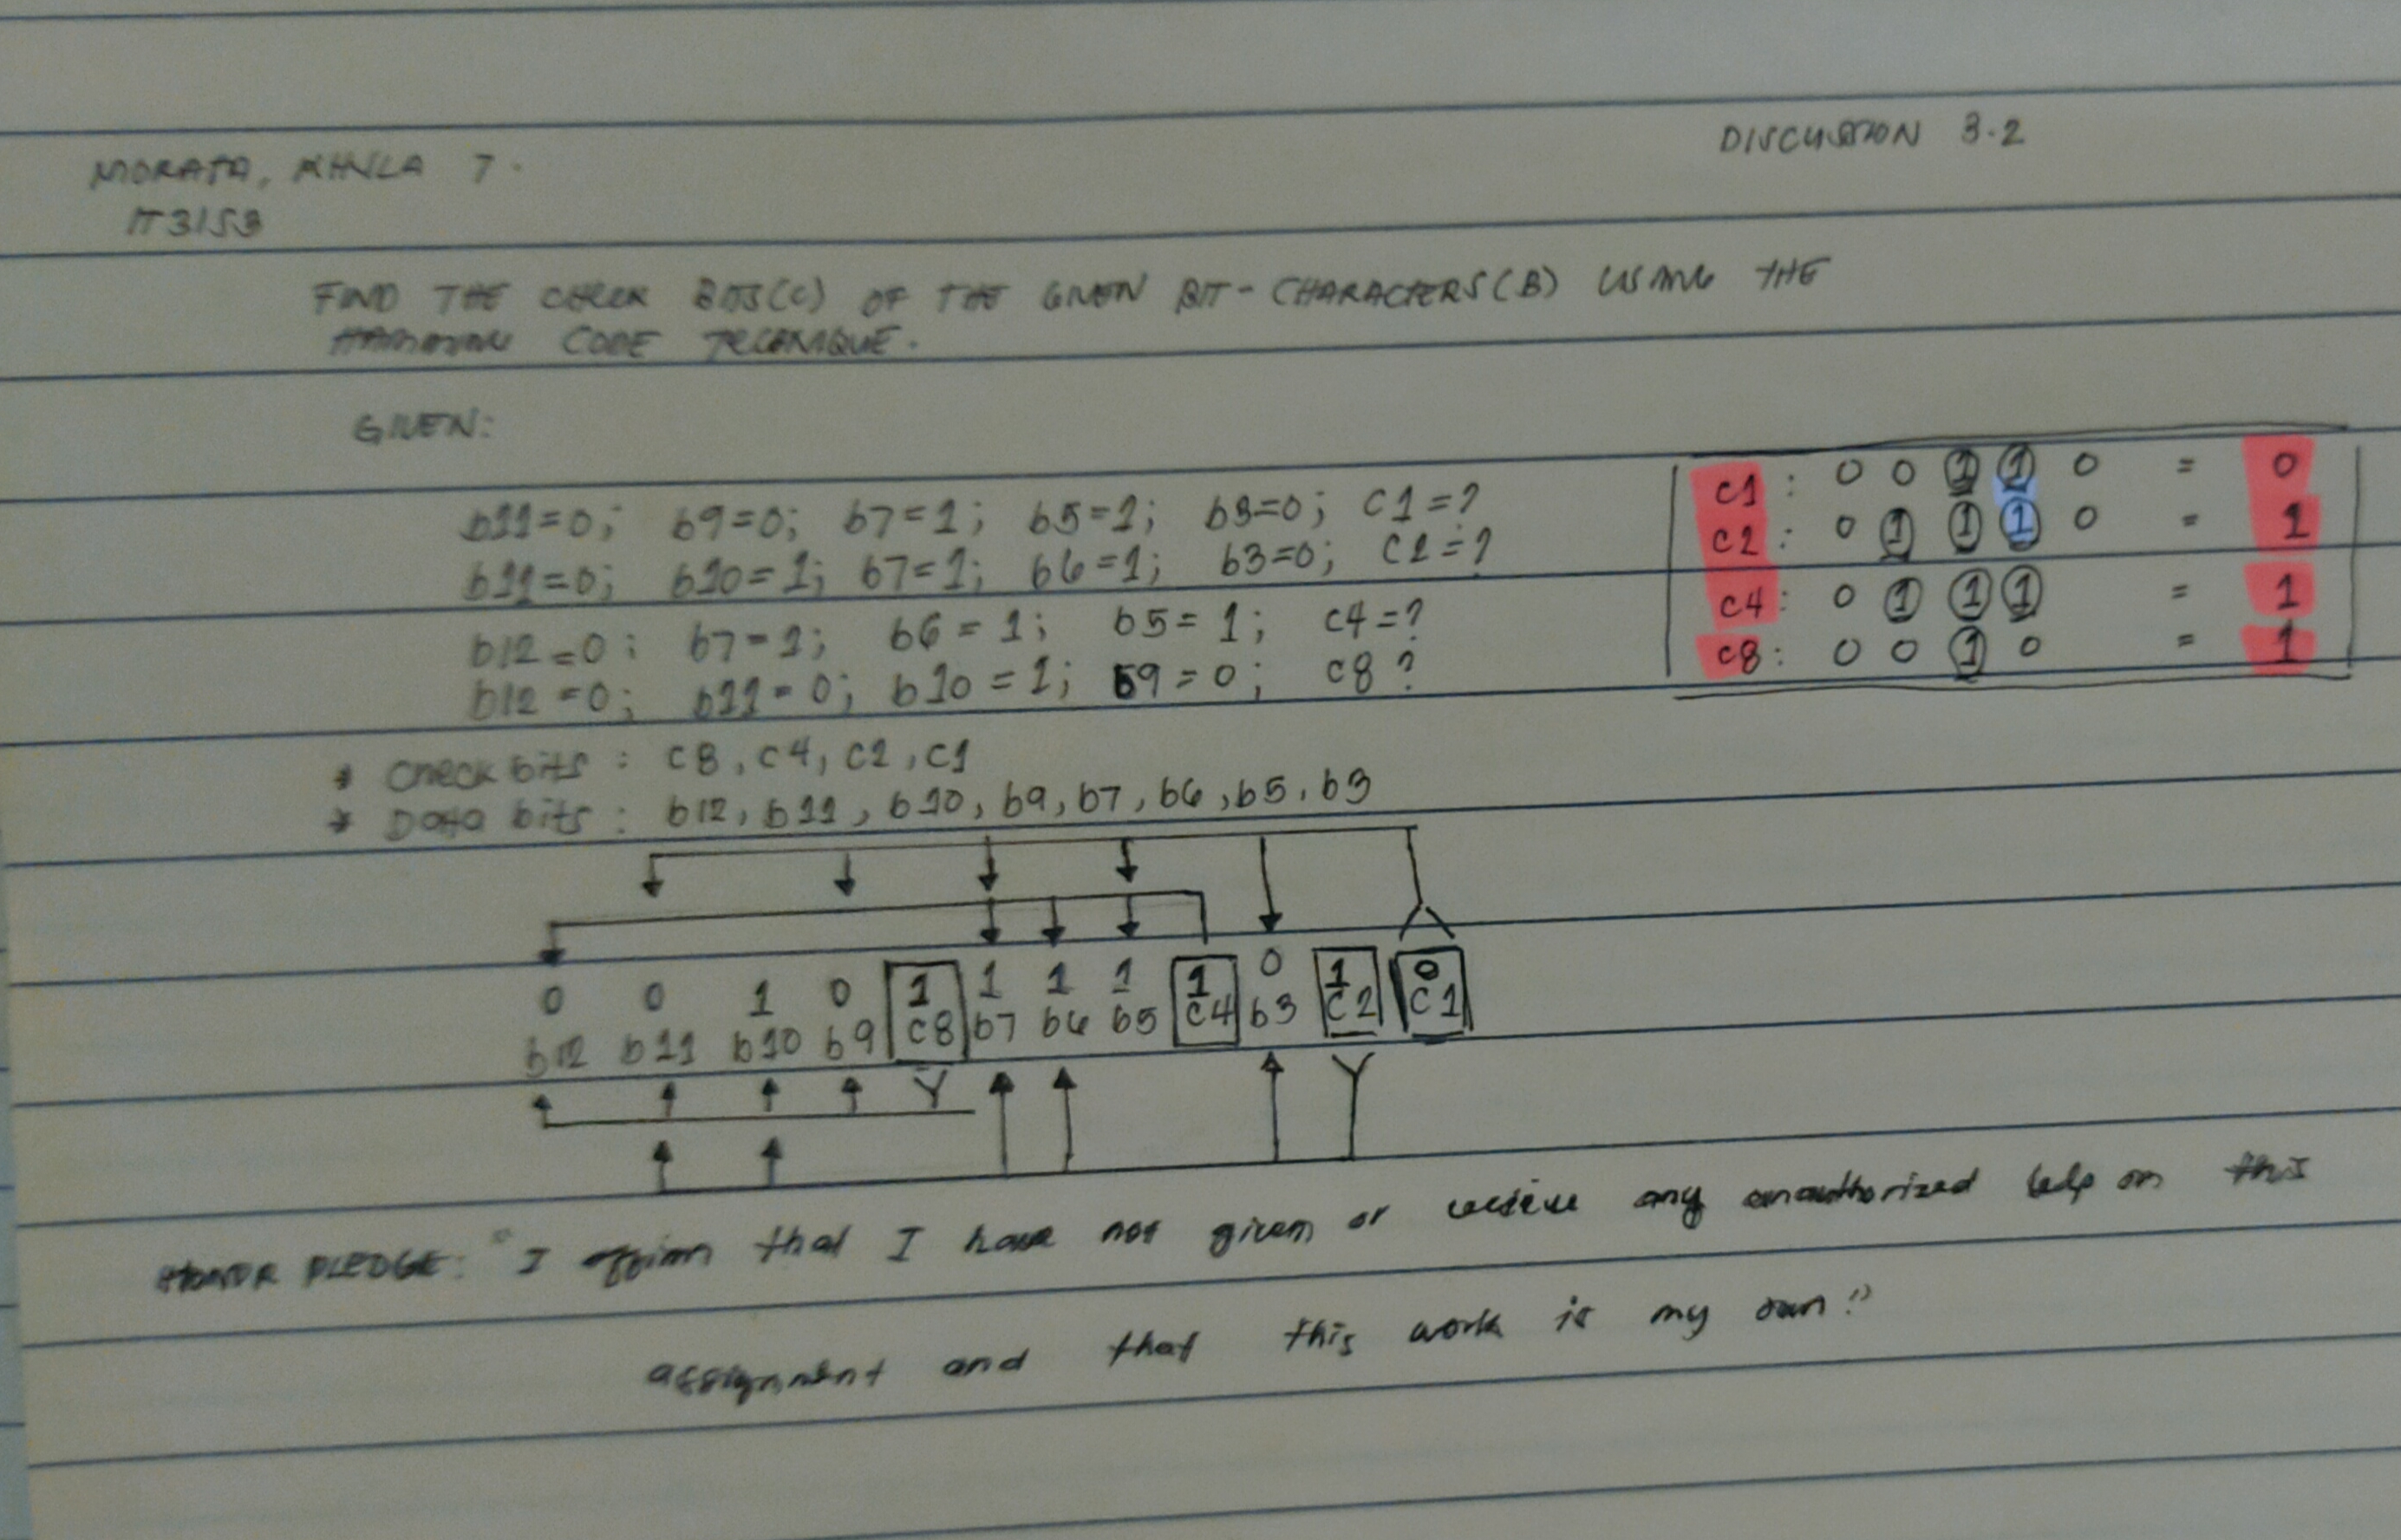 DISCUSSION 3.2
MORATA, KHYLA 7.
IT3153
FIND THE CHECK BITS(C) OF THE GIVEN BIT-CHARACTERS(B) USING THE
HAMMING CODE TECHNIQUE.
GIVEN:
b11=0; b9=0; b7=1; b5=1; b3=0; C1=?
b11=0; b10=1; b7=1; b6=1; b3=0; C2=?
b12=0; b7=1; b6=1; b5=1; c4=?
b12=0; b11=0; b10=1; b9=0; c8?
C1: 0 0 1 1 0 = 0
C2: 0 1 1 1 0 = 1
C4: 0 1 1 1 = 1
C8: 0 0 1 0 = 1
* Check bits: C8, C4, C2, C1
* Data bits: b12, b11, b10, b9, b7, b6, b5, b3
0 0 1 0 1 1 1 1 1 0 1 0
b12 b11 b10 b9 C8 b7 b6 b5 C4 b3 C2 C1
HONOR PLEDGE: "I affirm that I have not given or receive any unauthorized help on this
assignment and that this work is my own."